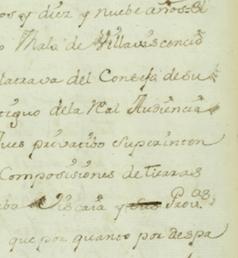 os y diez y nuebe años. El
o Mala de Villavicencio
latrava del Consejo de su
tiguo de la Rl Audiencia
Jues privatibo Superinten
Composisiones de tierras
Viscaia y sus Prov.as
que por quanto por Despa